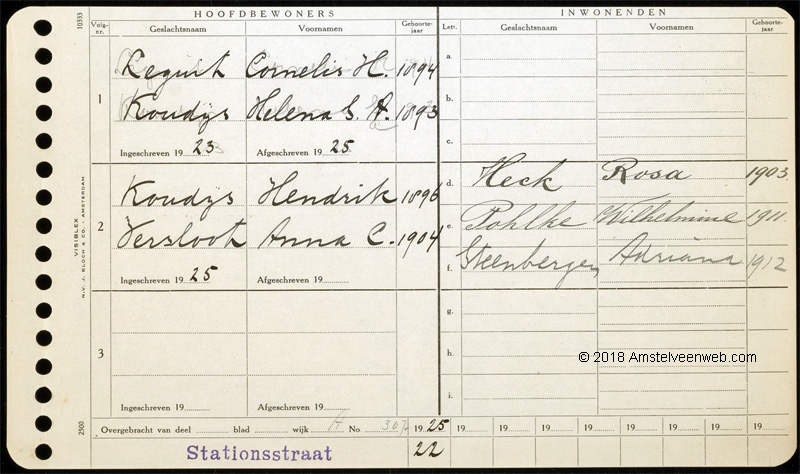 HOOFDBEWONERS INWONENDEN
Volg-nr. Geslachtsnaam Voornamen Geboorte-jaar Lett. Geslachtsnaam Voornamen Geboorte-jaar
10333
a.
Leguit Cornelis H. 1894
1
b.
Koudijs Helena G. A. 1893
c.
Ingeschreven 19 23 Afgeschreven 19 25
d. Heck Rosa 1903.
Koudijs Hendrik 1896
2
e. Pohlke Wilhelmine 1911.
Versloot Anna C. 1904
f. Steenbergen Adriana 1912
Ingeschreven 19 25 Afgeschreven 19
g.
3
h.
© 2018 Amstelveenweb.com
i.
Ingeschreven 19 Afgeschreven 19
VISIBLEX
N.V. J. BLOCH & CO. - AMSTERDAM
2500
Overgebracht van deel blad wijk H No. 307 19 25 19 19 19 19 19 19 19
Stationsstraat 22